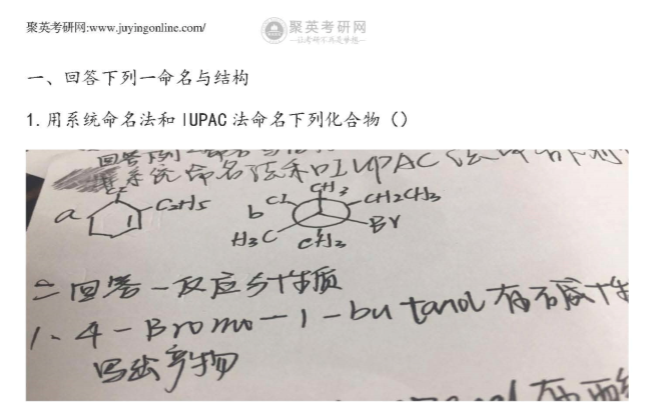 聚英考研网:www.juyingonline.com/
聚英考研网
一、回答下列一命名与结构
1.用系统命名法和IUPAC法命名下列化合物()
系统命名法和IUPAC法
a
C2H5
b
Cl
CH3
CH2CH3
Br
H3C
CH3
二 回答一反应与性质
1、4-Bromo-1-butanol 在石碱性
写出产物